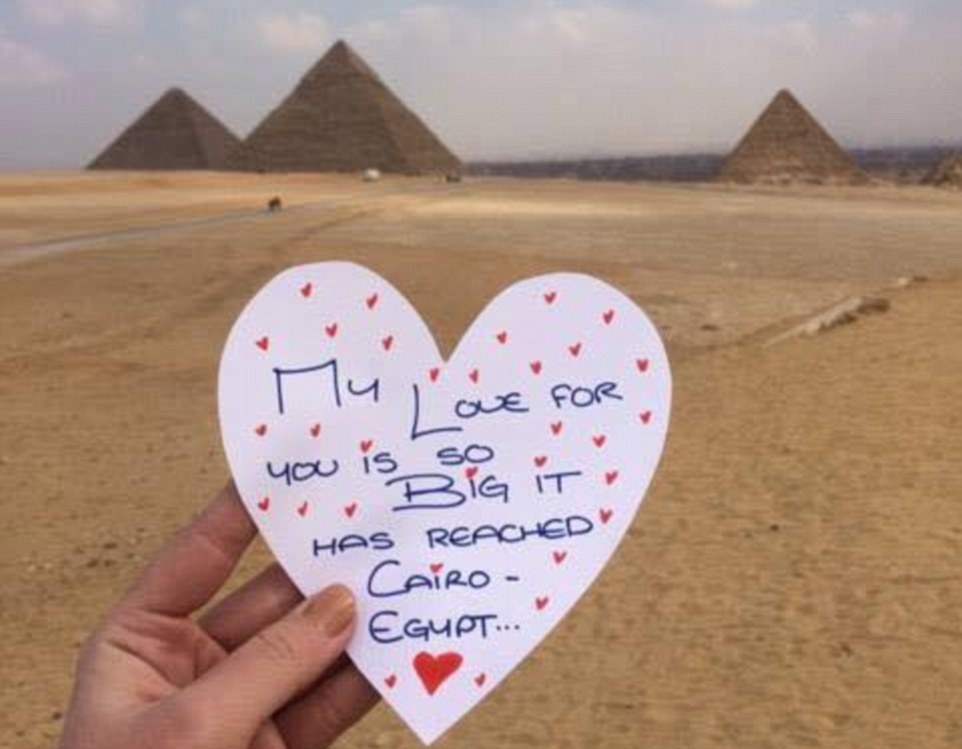 My Love for
you is so
Big it
has reached
Cairo -
Egypt...